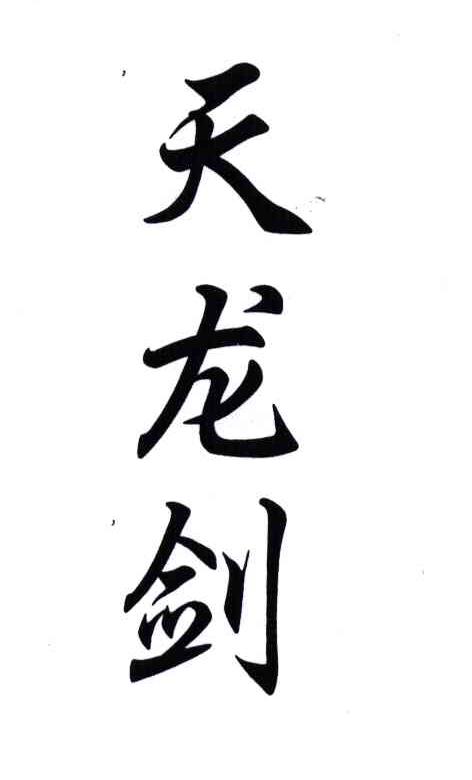 天龙剑